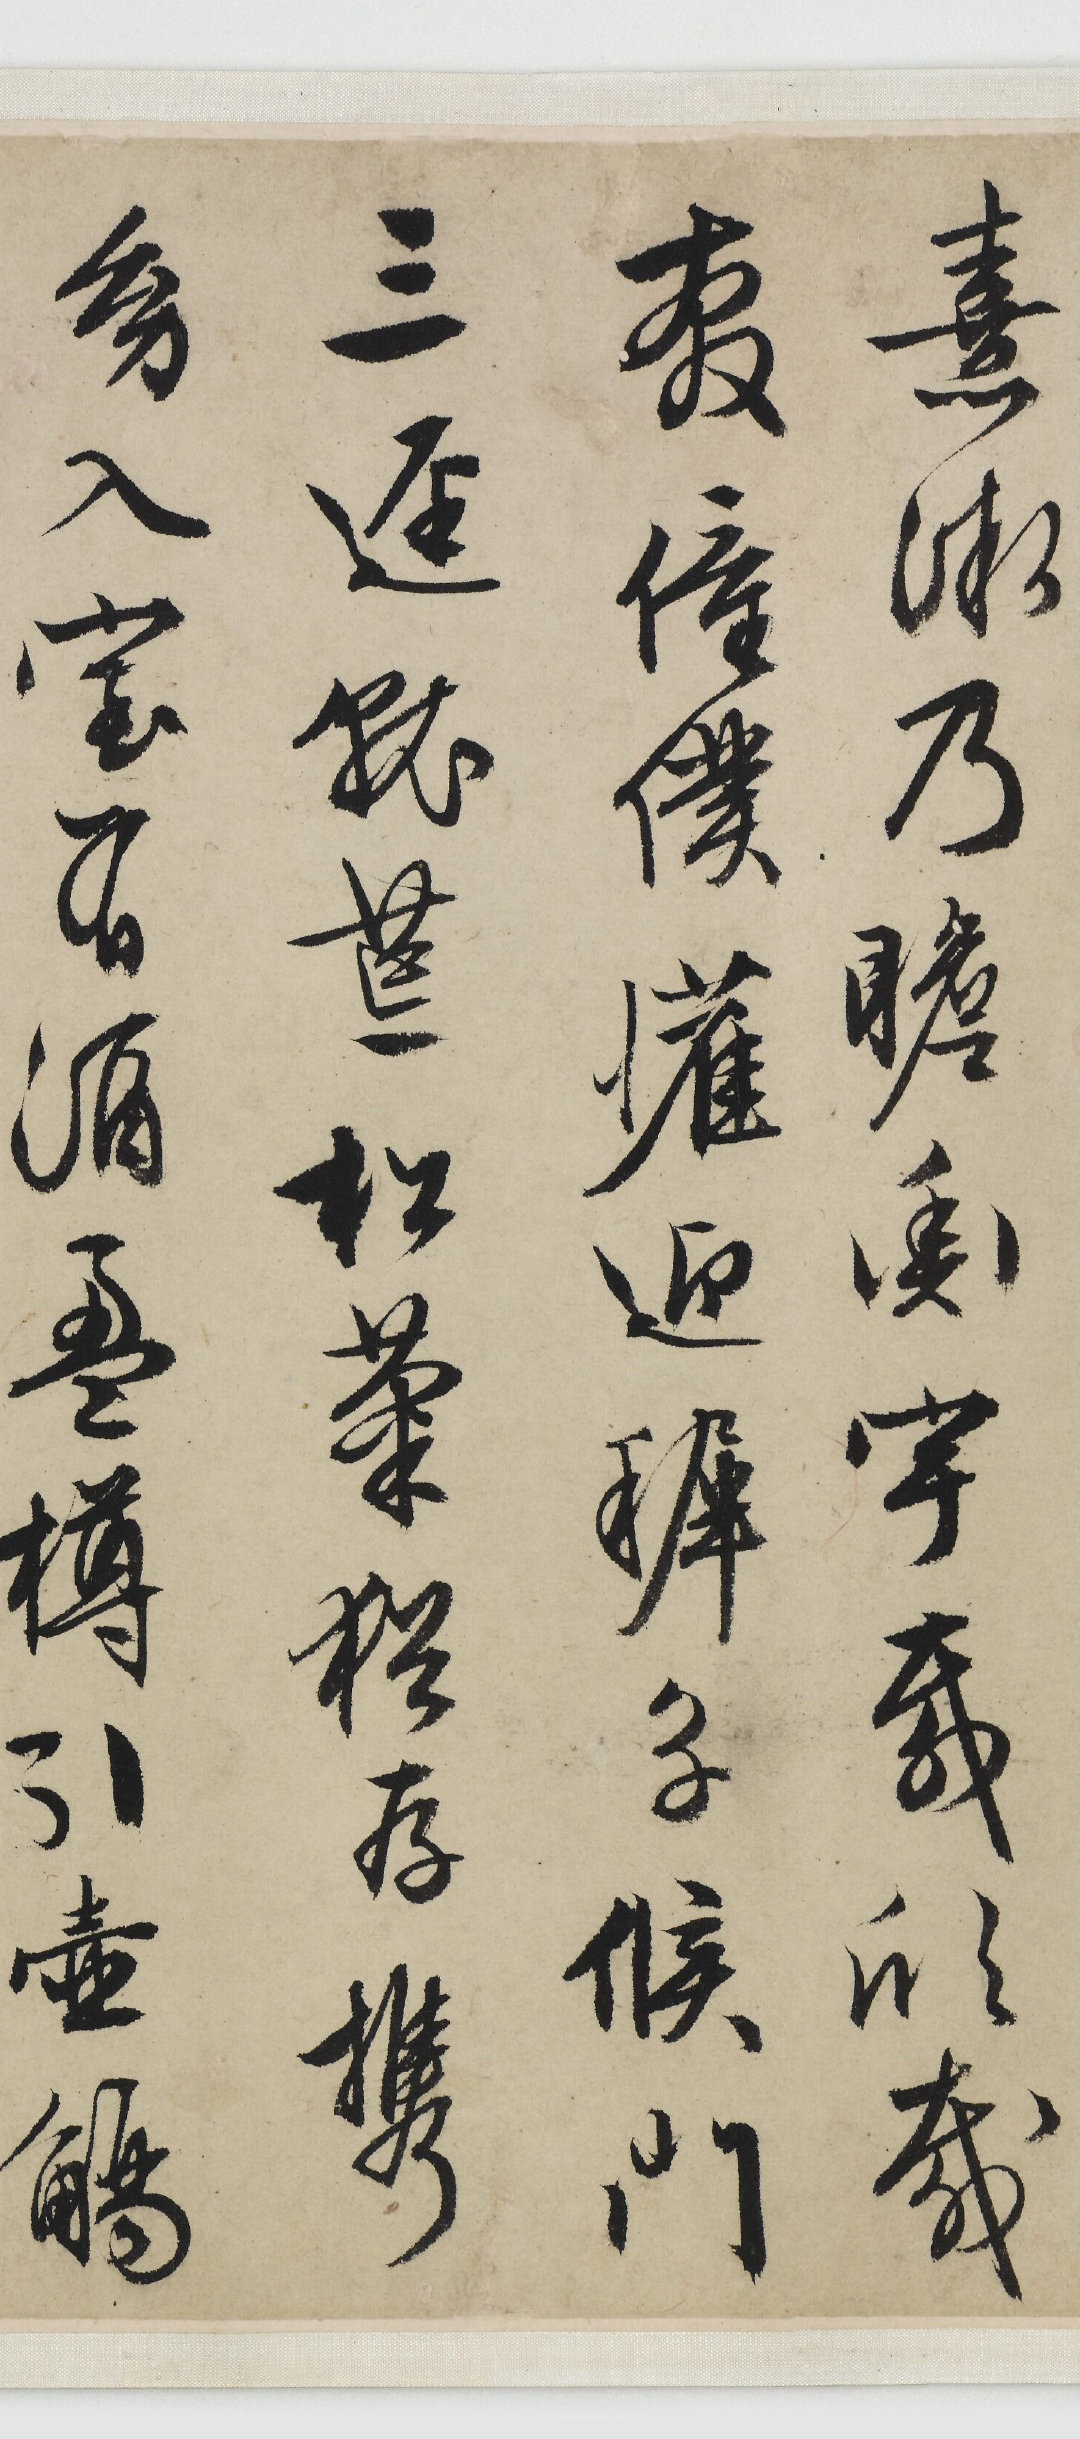 熹微乃瞻衡宇載欣載
奔僮僕懽迎稚子候門
三逕就荒松菊猶存攜
幼入室有酒盈樽引壺觴